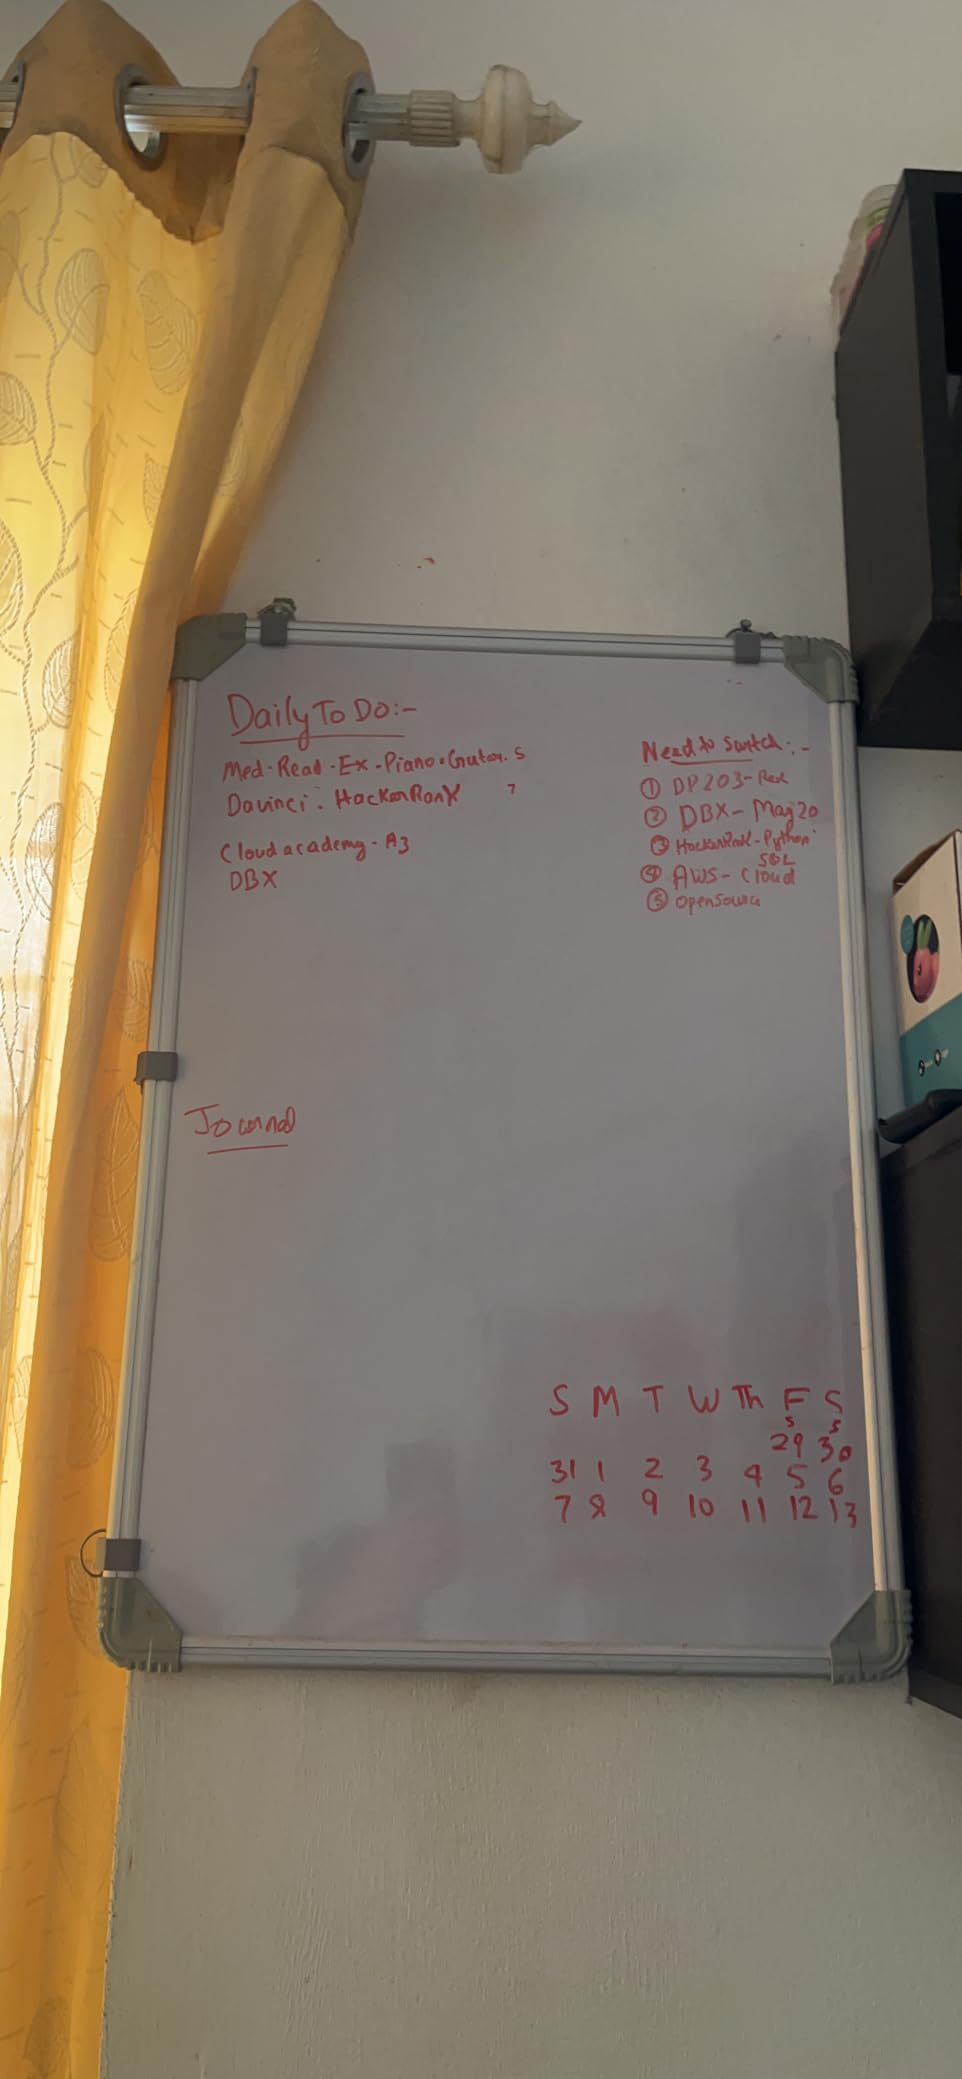 Daily To Do:-
Med-Read-Ex-Piano-Guitar. 5
Davinci: HackerRank 7
Cloud academy - A3
DBX
Need to Switch:-
① DP203-
② DBX- May 20
③ HackerRank-Python
SQL
④ AWS- Cloud
⑤ Opensource
Journal
S M T W Th F S
5 5
29 30
31 1 2 3 4 5 6
7 8 9 10 11 12 13